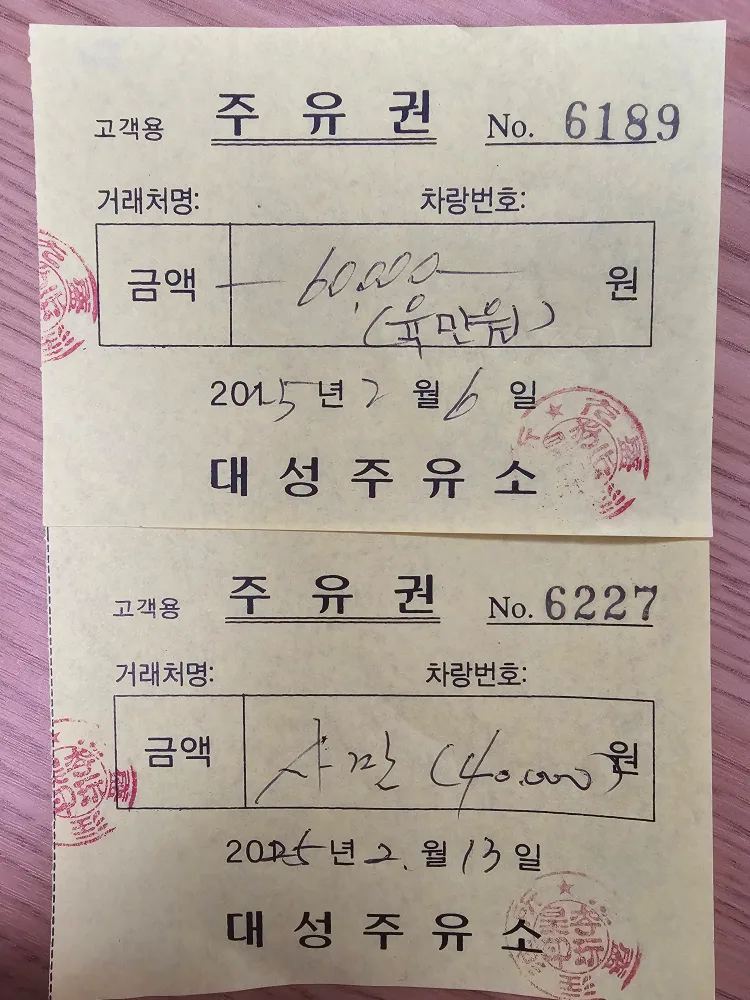 고객용 주유권 No. 6189
거래처명: 차량번호:
금액 60,000 원
(육만원)
2025년 2월 6일
대성주유소
고객용 주유권 No. 6227
거래처명: 차량번호:
금액 사만 (40.000) 원
2025년 2.월 13일
대성주유소